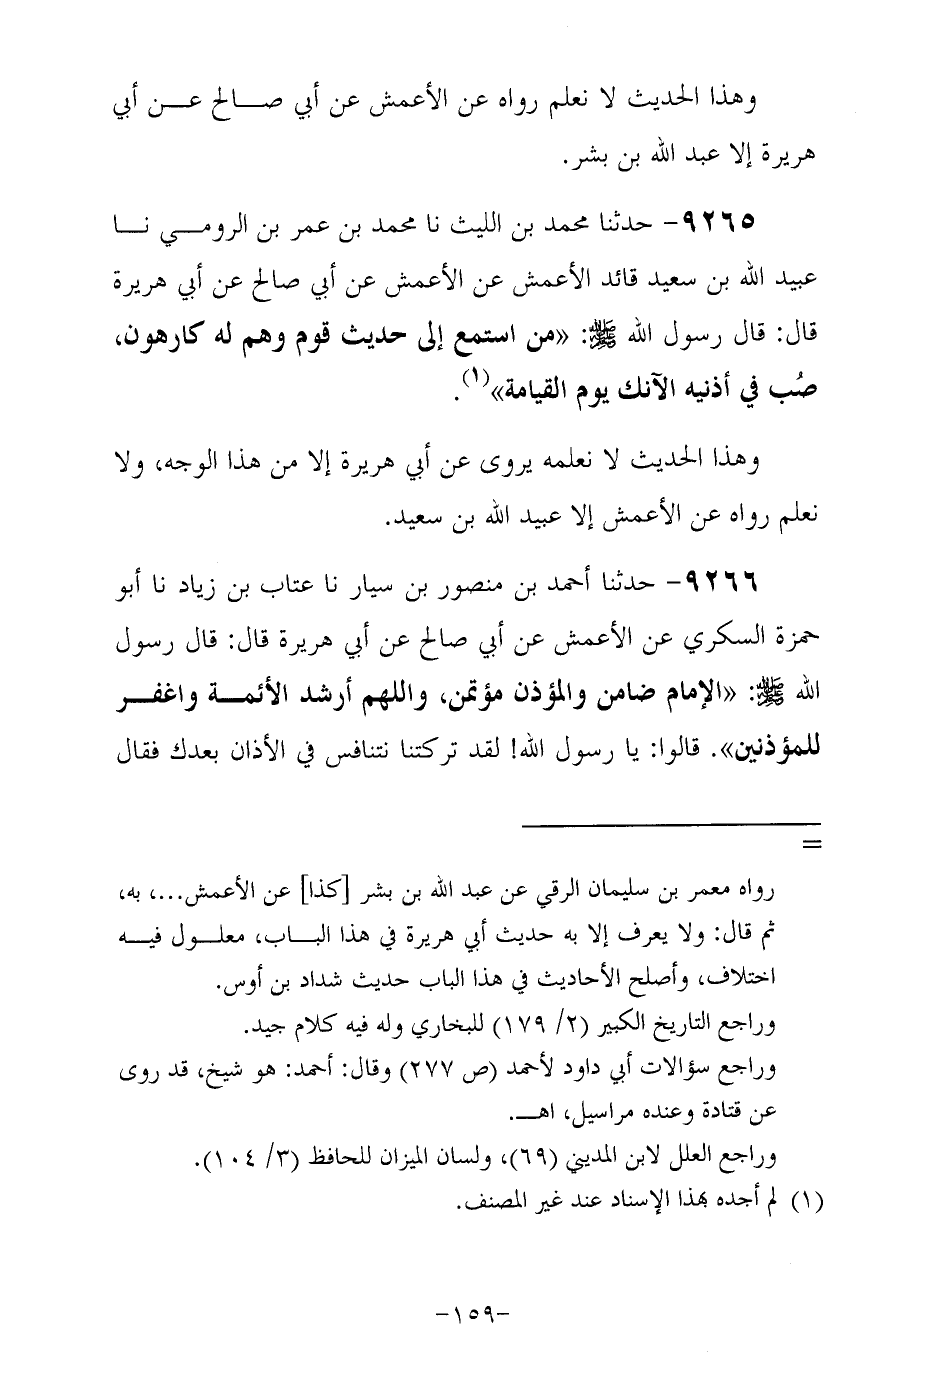 وهذا الحديث لا نعلم رواه عن الأعمش عن أبي صالح عن أبي
هريرة إلا عبد الله بن بشر.
٩٢٦٥- حدثنا محمد بن الليث نا محمد بن عمر بن الرومي نا
عبيد الله بن سعيد قائد الأعمش عن الأعمش عن أبي صالح عن أبي هريرة
قال: قال رسول الله ﷺ: «من استمع إلى حديث قوم وهم له كارهون،
صُب في أذنيه الآنك يوم القيامة»(١).
وهذا الحديث لا نعلمه يروى عن أبي هريرة إلا من هذا الوجه، ولا
نعلم رواه عن الأعمش إلا عبيد الله بن سعيد.
٩٢٦٦- حدثنا أحمد بن منصور بن سيار نا عتاب بن زياد نا أبو
حمزة السكري عن الأعمش عن أبي صالح عن أبي هريرة قال: قال رسول
الله ﷺ: «الإمام ضامن والمؤذن مؤتمن، واللهم أرشد الأئمة واغفر
للمؤذنين». قالوا: يا رسول الله! لقد تركتنا نتنافس في الأذان بعدك فقال
=
رواه معمر بن سليمان الرقي عن عبد الله بن بشر [كذا] عن الأعمش...، به،
ثم قال: ولا يعرف إلا به حديث أبي هريرة في هذا الباب، معلول فيه
اختلاف، وأصلح الأحاديث في هذا الباب حديث شداد بن أوس.
وراجع التاريخ الكبير (٢/ ١٧٩) للبخاري وله فيه كلام جيد.
وراجع سؤالات أبي داود لأحمد (ص ٢٧٧) وقال: أحمد: هو شيخ، قد روى
عن قتادة وعنده مراسيل، اهـ.
وراجع العلل لابن المديني (٦٩)، ولسان الميزان للحافظ (٣/ ١٠٤).
(١) لم أجده بهذا الإسناد عند غير المصنف.
-١٥٩-